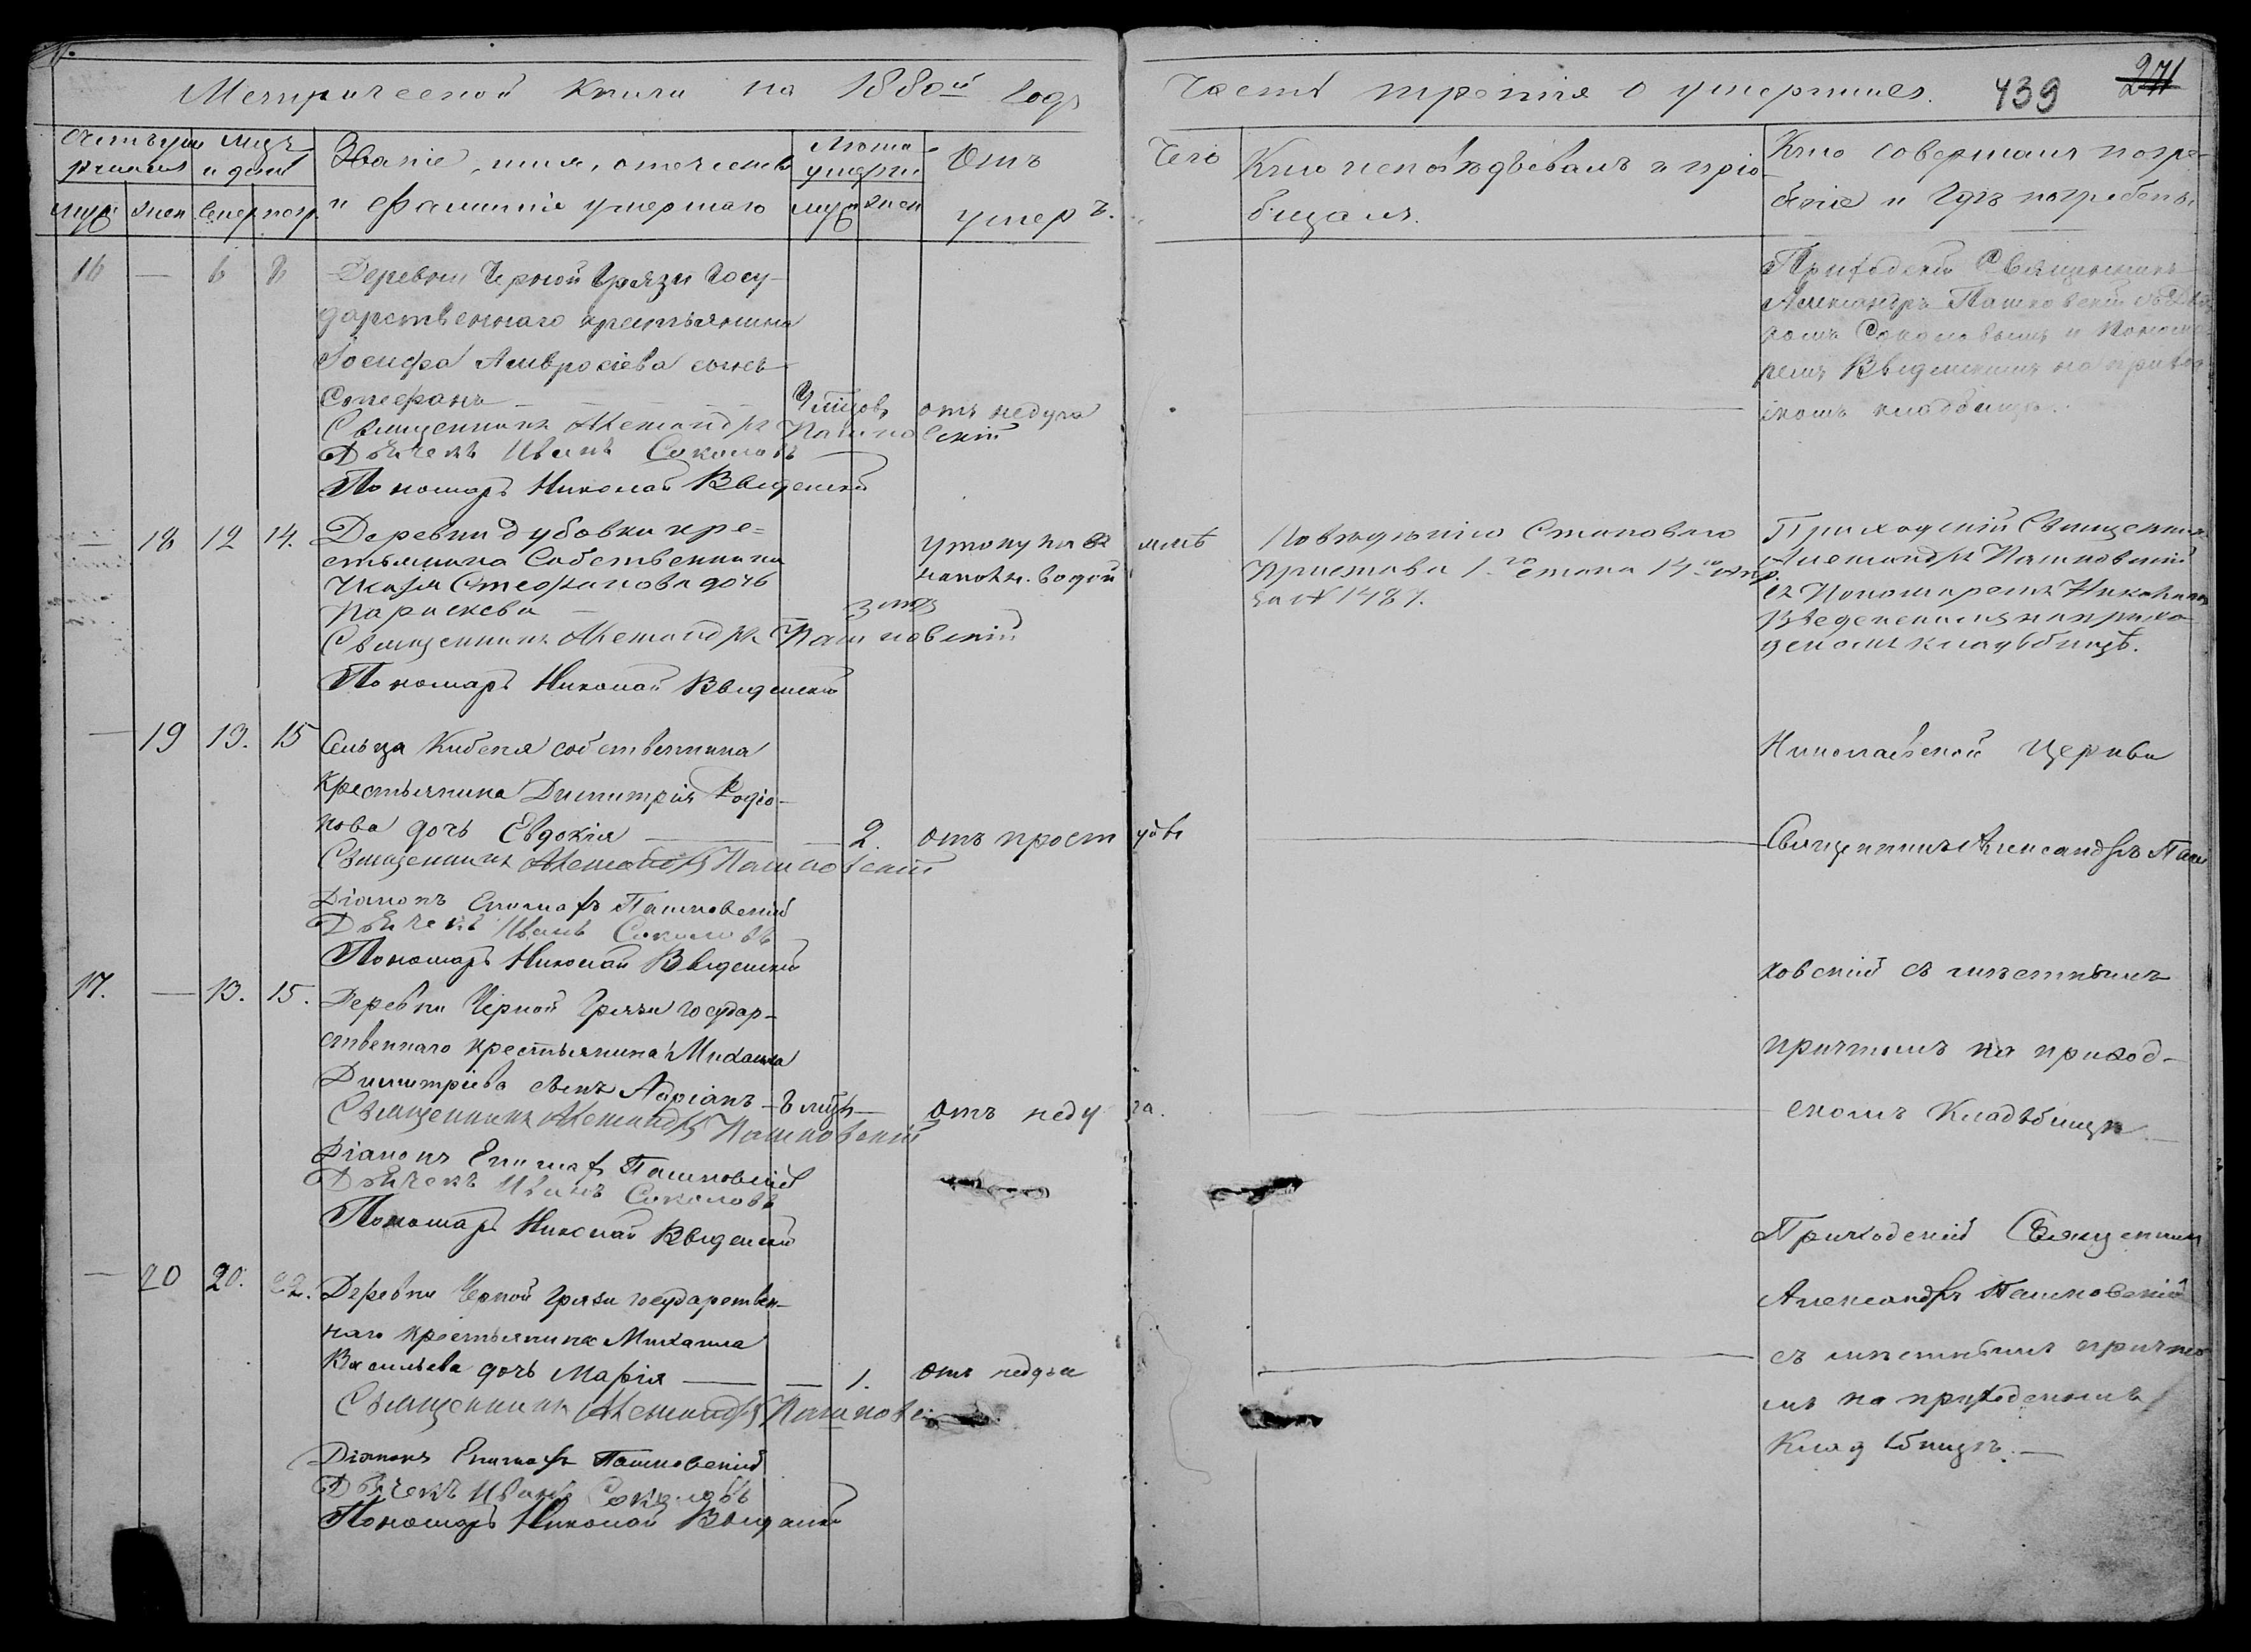 Метрической книги на 1880й годъ
Часть третія о умершихъ. 439 271
Счетъ умершихъ
Мѣс. и день
Званіе, имя, отечество
и фамилія умершаго
муж. жен. смер. погр.
Лѣта умерш.
муж. жен.
Отъ
умеръ.
Чего
Кто исповѣдывалъ и пріо-
бщалъ.
Кто совершалъ погре-
беніе и гдѣ погребены
16 — 6 8 Деревни Черной Грязи Госу-
дарственнаго крестьянина
Іосифа Амвросіева сынъ
Стефанъ
отъ недуга
Священникъ Александръ Пашковскій
Дьячекъ Иванъ Соколовъ
Пономарь Николай Введенскій
Приходскій Священникъ
Александръ Пашковскій съ
Соколовымъ и Понома-
ремъ Введенскимъ на приход-
скомъ кладбищѣ.
— 18 12 14. Деревни Дубовки кре-
стьянина Собственника
Стефанова дочь
Параскева
Священникъ Александръ Пашковскій
Пономарь Николай Введенскій
утонула въ
водой
По вѣденію Становаго
Пристава 1го стана 14го
за № 1487.
Приходскій Священникъ
Александръ Пашковскій
съ Пономаремъ Николаемъ
Введенскимъ на прихо-
дскомъ кладьбищѣ.
— 19 13. 15 Сельца собственника
Крестьянина Димитрія Родіо-
нова дочь Евдокія — 2. отъ простуды
Священникъ Александръ Пашковскій
Діаконъ Пашковскій
Дьячекъ Иванъ Соколовъ
Пономарь Николай Введенскій
Николаевской Церкви
Священникъ Александръ Паш-
ковскій съ мѣстнымъ
причтомъ на приход-
скомъ Кладьбищѣ
17. — 13. 15. Деревни Черной Грязи государ-
ственнаго крестьянина Михаила
Димитріева сынъ Адріанъ — отъ недуга.
Священникъ Александръ Пашковскій
Діаконъ Пашковскій
Дьячекъ Иванъ Соколовъ
Пономарь Николай Введенскій
— 20 20. 22. Деревни Черной Грязи государствен-
наго крестьянина Михаила
Васильева дочь Марія — 1. отъ недуга
Священникъ Александръ Пашковскій
Діаконъ Пашковскій
Дьячекъ Иванъ Соколовъ
Пономарь Николай Введенскій
Приходскій Священникъ
Александръ Пашковскій
съ мѣстнымъ причто-
мъ на приходскомъ
Кладбищѣ. —